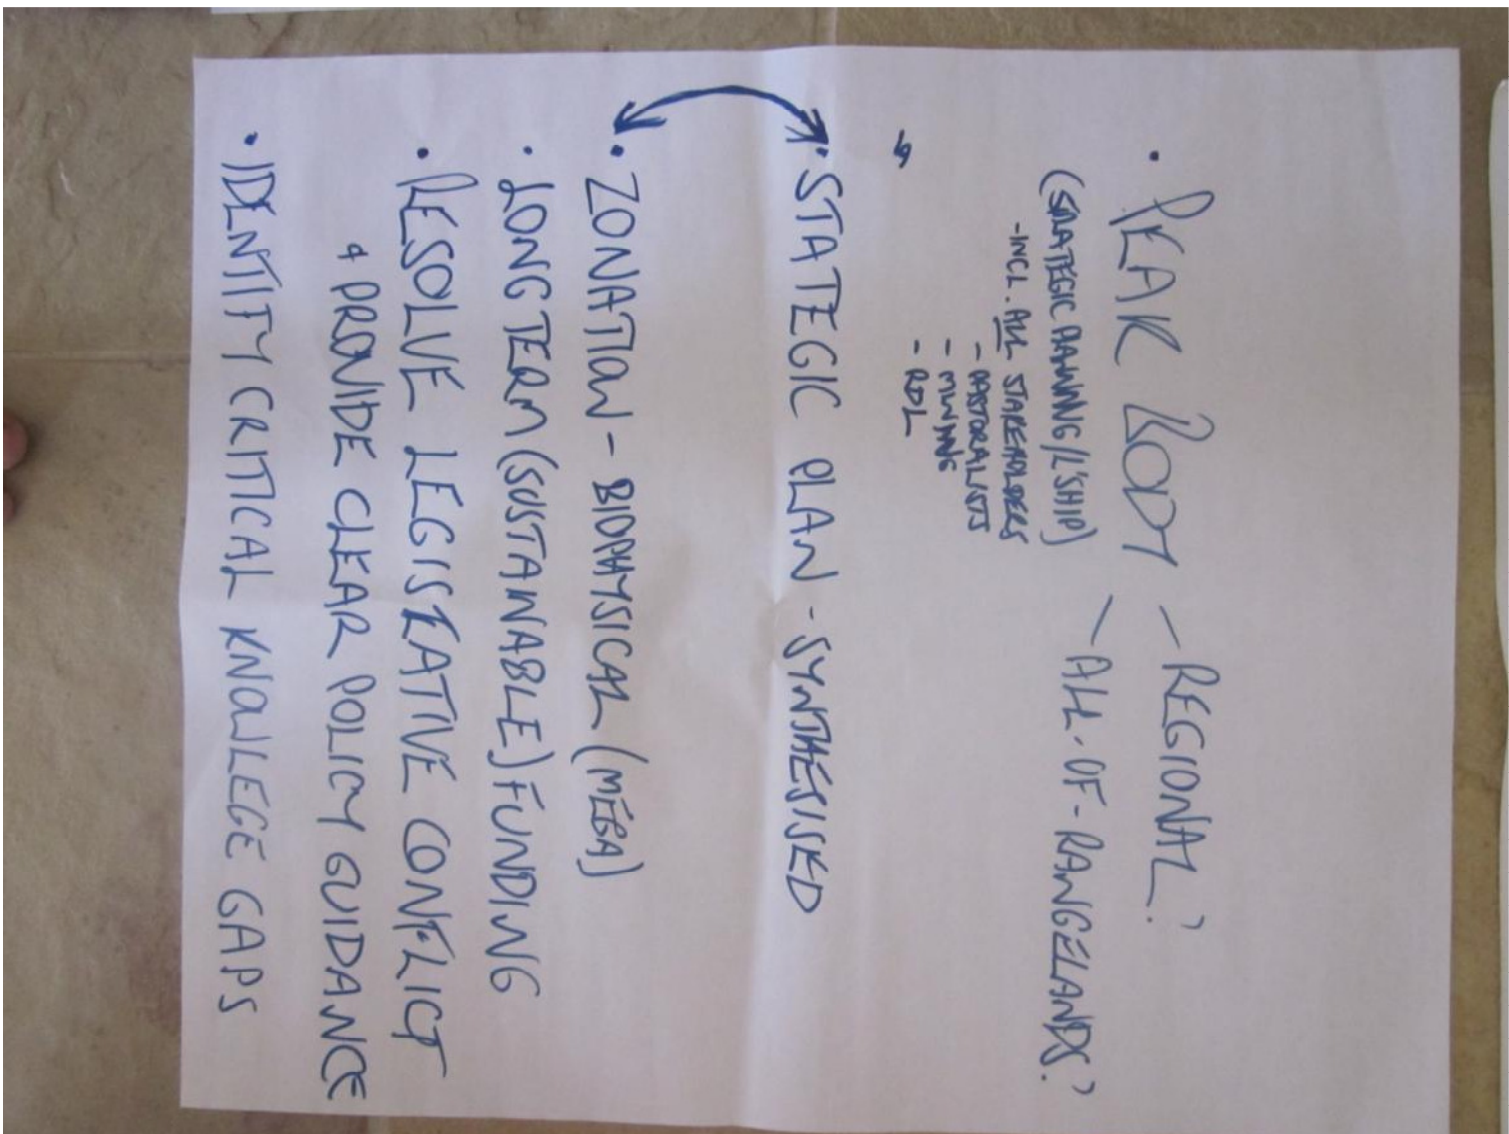 • PEAK BODY – REGIONAL?
– ALL-OF-RANGELANDS?
(STRATEGIC PLANNING/L'SHIP)
-INCL. ALL STAKEHOLDERS
- PASTORALISTS
- MINING
- RDL
• STATEGIC PLAN - SYNTHESISED
• ZONATION – BIOPHYSICAL (MEGA)
• LONG TERM (SUSTAINABLE) FUNDING
• RESOLVE LEGISLATIVE CONFLICT
& PROVIDE CLEAR POLICY GUIDANCE
• IDENTIFY CRITICAL KNOWLEGE GAPS